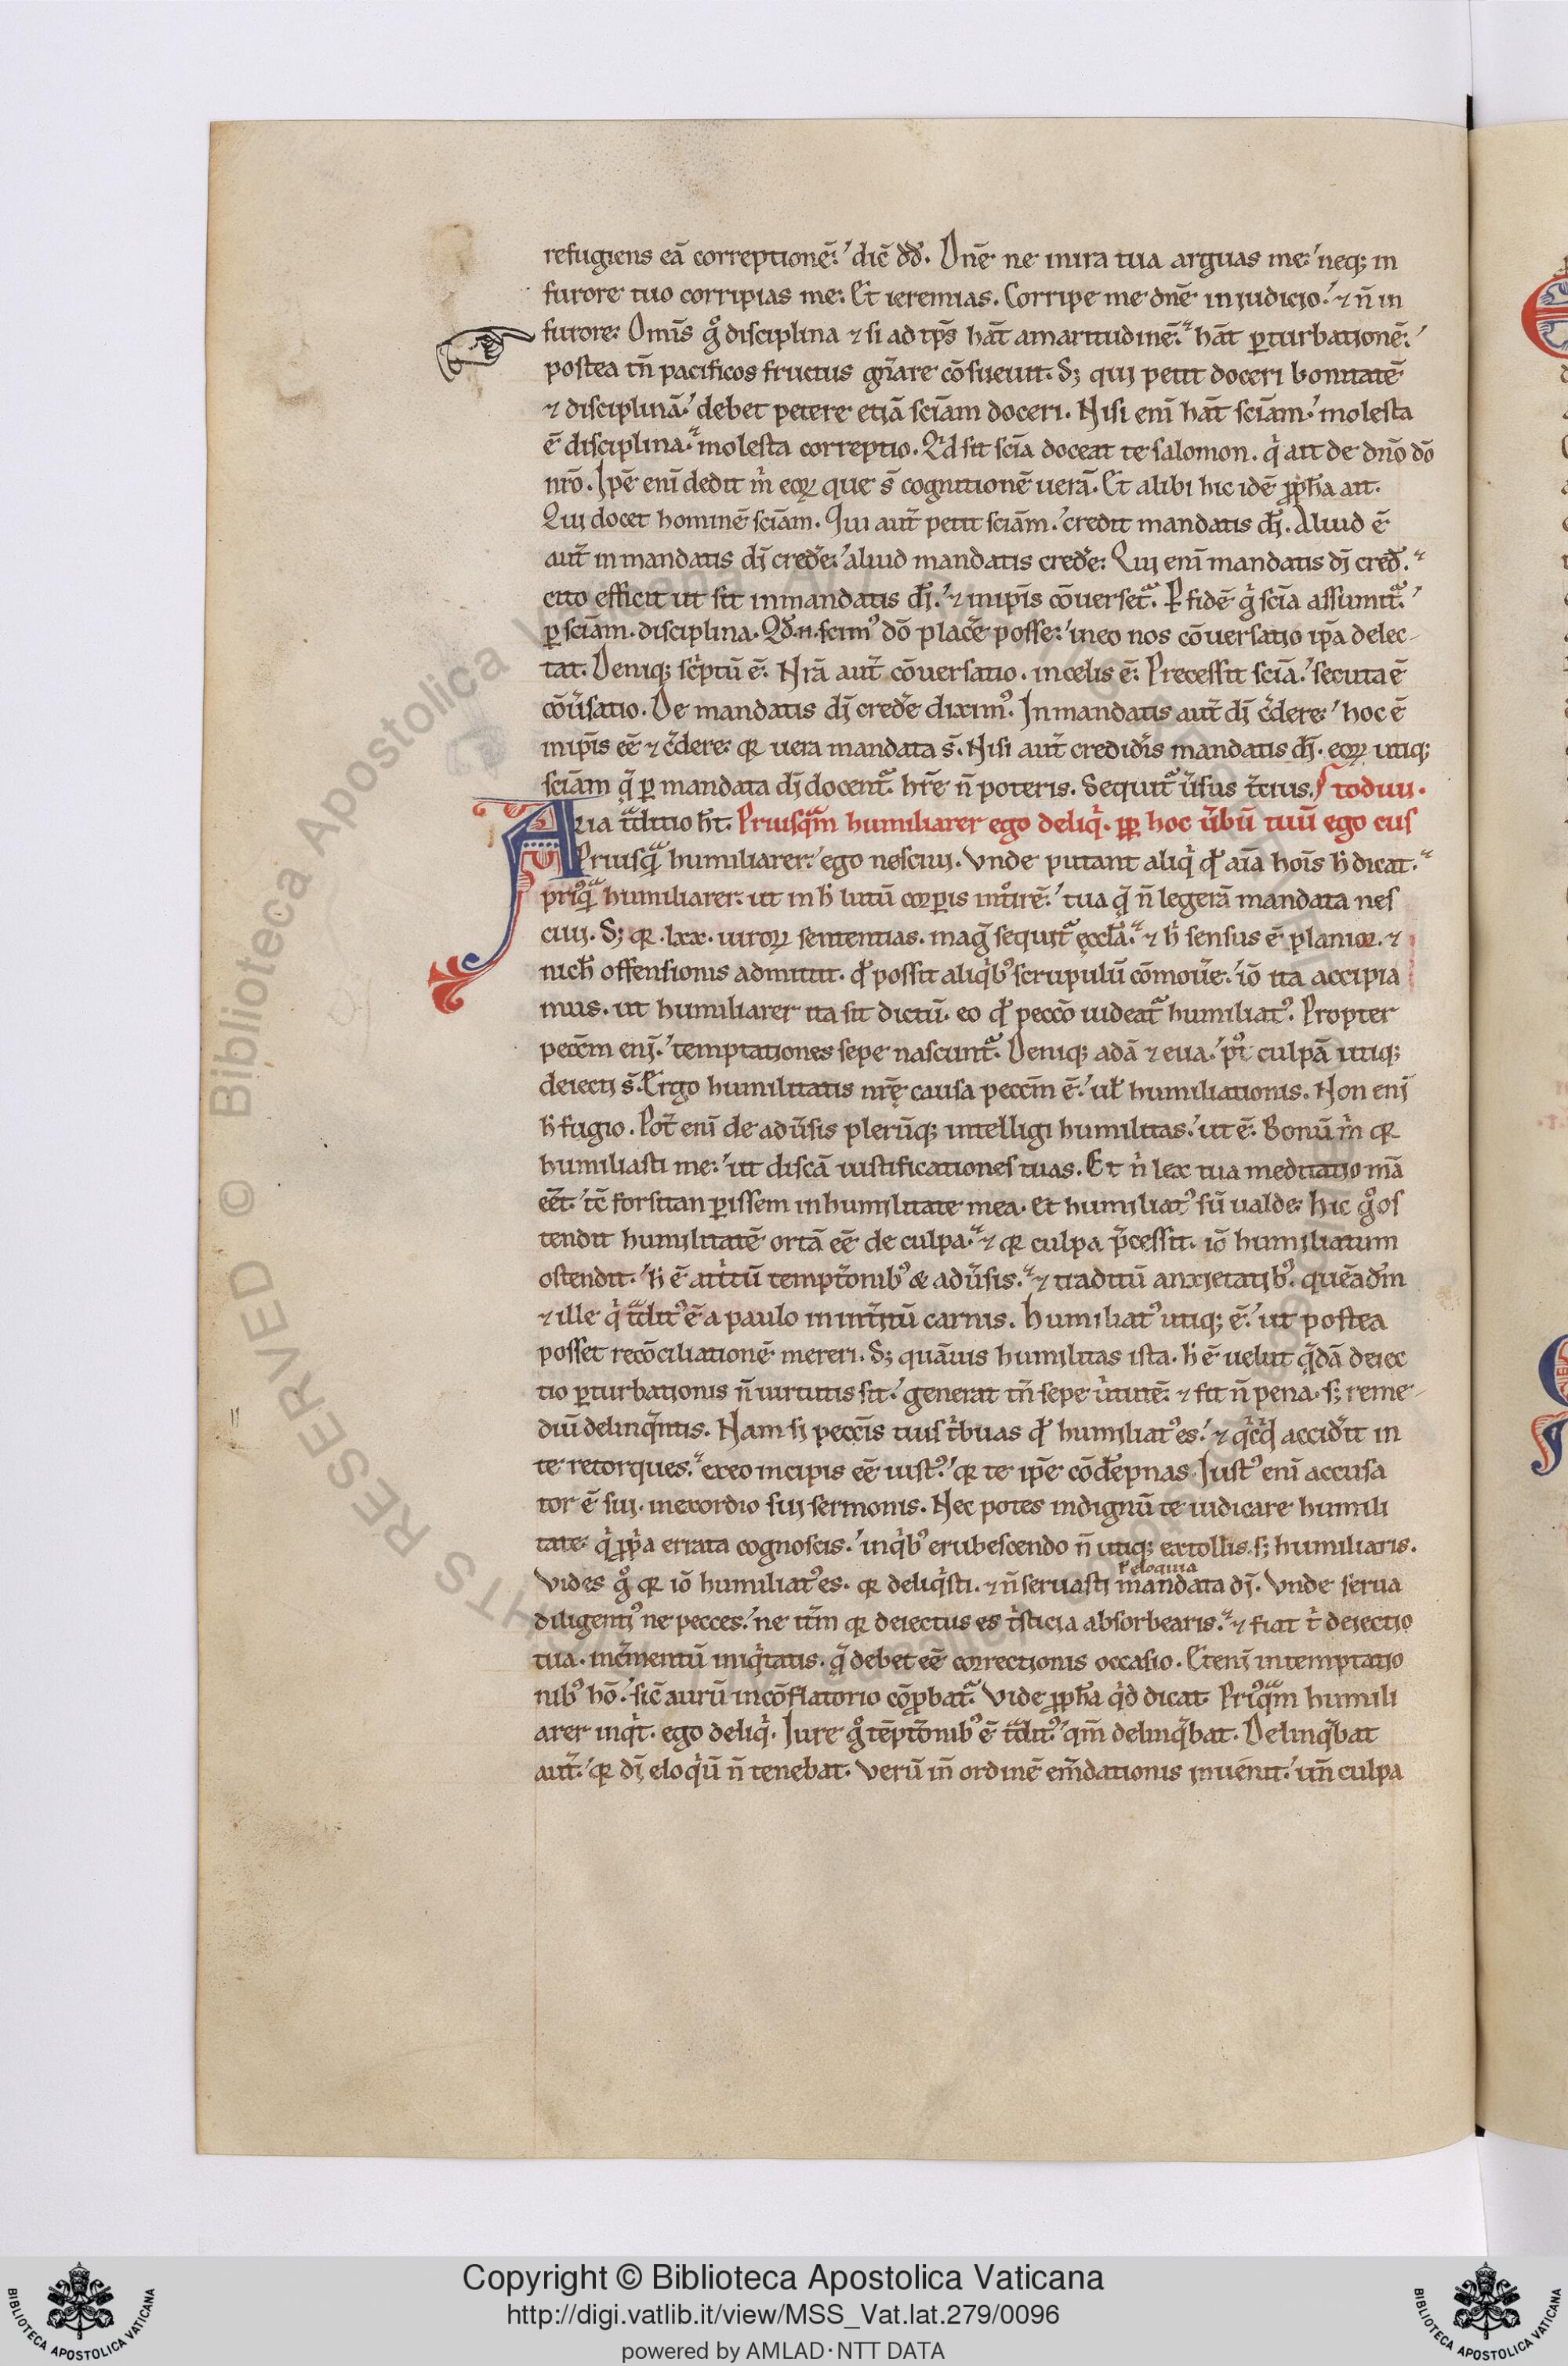 refugiens eā correptionē. dic̄ dd. Dnē ne in ira tua arguas me. neq; in
furore tuo corripias me. Et ieremias. Corripe me dnē in judicio. ⁊ n̄ in
furore. Omīs gͦ disciplina ⁊ si ad tp̄s hāt amaritudinē. hāt ꝑturbationē.
postea tn̄ pacificos fructus gn̄are cōsueuit. S; qui petit doceri bonitatē
⁊ disciplinā. debet petere etiā sciām doceri. Nisi enī hāt sciām. molesta
ē disciplina. molesta correptio. Qͥd sit sciā doceat te salomon. qͥ ait de dnō dō
nr̄o. Ipē enī dedit mͥ eoꝝ que s̄ cognitionē uerā. Et alibi hic idē ꝓph̄a ait.
Qui docet hominē sciām. Qui aut̄ petit sciām. credit mandatis dī. Aliud ē
aut̄ in mandatis dī cređe. aliud mandatis cređe. Qui enī mandatis dī cređ.
cito efficit ut sit in mandatis dī. ⁊ in ip̄is cōuersetᷓ. P̱ fidē gͥ sciā assumitᷓ.
ꝑ sciām. disciplina. Qđ .n. scimꝰ dō placēe posse. in eo nos cōuersatio ip̄a delec-
tat. Deniq; scͥptū ē. Nr̄a aut̄ cōuersatio. in celis ē. Precessit sciā. secuta ē
cōuͥsatio. De mandatis dī cređe diximꝰ. In mandatis aut̄ dī c̄dere. hoc ē
in ip̄is eē ⁊ c̄dere. qꝛ uera mandata s̄. Nisi aut̄ credidīs mandatis dī. eoꝝ utiq;
sciām q̄ ꝑ mandata dī docentᷓ. hr̄e n̄ poteris. Sequitᷓ ūsus t̄cius. todiui.
Aria tᷓditio ht̄. Priusqᷓm humiliarer ego deliqͥ. ꝓp̄ hoc ūbū tuū ego cus
Priusqᷓ humiliarer. ego nesciui. Vnde putant aliqͥ qđ aīa hoīs ħ dicat.
priꝰqᷓ humiliarer. ut in ħ lutū corꝑis intͦirē. tua q̄ n̄ legerā mandata nes
ciui. S; qꝛ .lxx. uiroꝝ sententias. mag̃ sequitᷓ ęccl̄a. ⁊ ħ sensus ē planior. ⁊
nich̄ offensionis admittit. qđ possit aliqͥbꝰ scrupulū cōmoūe. iō ita accipia
mus. ut humiliarer ita sit dictū. eo qđ peccō uideatᷓ humiliatꝰ. Propter
pecc̄m enī. temptationes sepe nascuntᷓ. Deniq; adā ⁊ eua. pͦt culpā utiq;
deiecti s̄. Ergo humilitatis nr̄ę causa pecc̄m ē. ul̄ humiliationis. Non enī
ħ fugio. Pot̄ enī de adūsis plerūq; intelligi humilitas. ut ē. Bonū mͥ qꝛ
humiliasti me. ut discā iustificationes tuas. Et nͥ lex tua meditatio mā
eēt. tc̄ forsitan ꝑissem in humilitate mea. et humiliatꝰ sū ualde. hic gͦ os
tendit humilitatē ortā eē de culpa. ⁊ qꝛ culpa p̄cessit. iō humiliatum
ostendit. ħ ē attͥtū tempt̄onibꝰ & adūsis. ⁊ traditū anxietatibꝰ. quēadm̄
⁊ ille qͥ tᷓditꝰ ē a paulo in int̄itū carnis. Humiliatꝰ utiq; ē. ut postea
posset recōciliationē mereri. S; quāuis humilitas ista. ħ ē uelut qᷓdā deiec
tio ꝑturbationis n̄ uirtutis sit. generat tn̄ sepe uͥtutē. ⁊ fit n̄ pena. s; reme-
diū delinqᷓntis. Nam si pecc̄is tuis tͥbuas qđ humiliatꝰ es. ⁊ qͥcqͥd acciđit in
te retorques. ex eo incipis eē iustꝰ. qꝛ te ipē cōdēpnas. Iustꝰ enī accusa
tor ē sui. in exordio sui sermonis. Nec potes indignū te iudicare humili
tate. qͥ ꝓpͥa errata cognoscis. in qͥbꝰ erubescendo n̄ utiq; extollis. s; humiliaris.
eloquia
Vides gͦ qꝛ iō humiliatꝰ es. qꝛ deliqͥsti. ⁊ n̄ seruasti mandata dī. Vnde serua
diligentiꝰ ne pecces. ne it̄m qꝛ deiectus es tͥsticia absorbearis. ⁊ fiat tͥ deiectio
tua. inc̄mentū iniqͥtatis. q̄ debet eē correctionis occasio. Etenī in temptatio
nibꝰ hō. sic̄ aurū in cōflatorio cōꝓbatᷓ. Vide ꝓph̄a qͥd dicat. Priꝰqᷓm humili
arer inqͥt. ego deliqͥ. Iure gͦ tēpt̄onibꝰ ē tᷓditꝰ. qm̄ delinqᷓbat. Delinqᷓbat
aut̄. qꝛ dī eloqͥū n̄ tenebat. Verū in̄ ordinē em̄dationis inuenit. un̄ culpa
Copyright © Biblioteca Apostolica Vaticana
http://digi.vatlib.it/view/MSS_Vat.lat.279/0096
powered by AMLAD·NTT DATA